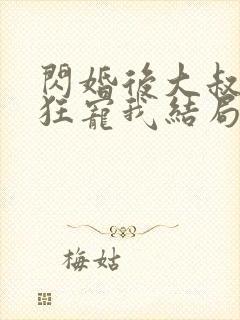 閃婚後大叔
狂寵我結局
梅姑